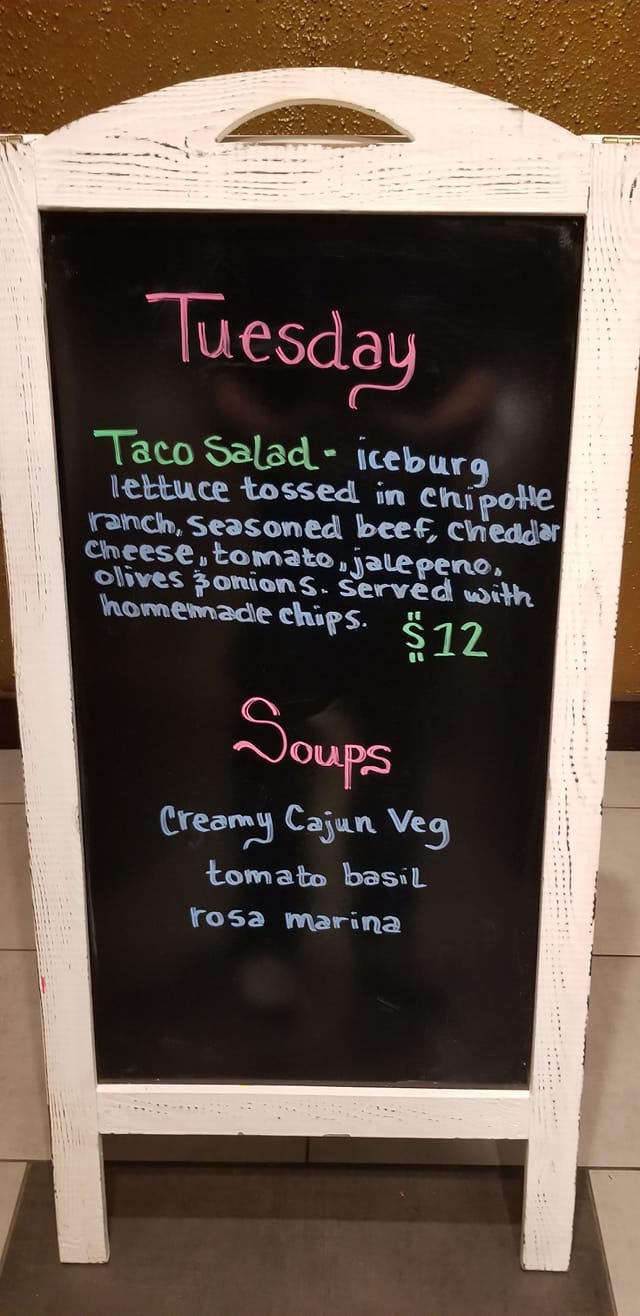 Tuesday
Taco Salad - iceburg
lettuce tossed in chipotle
ranch, seasoned beef, cheddar
cheese, tomato, jalepeno,
olives & onions. served with
homemade chips. $12
Soups
Creamy Cajun Veg
tomato basil
rosa marina